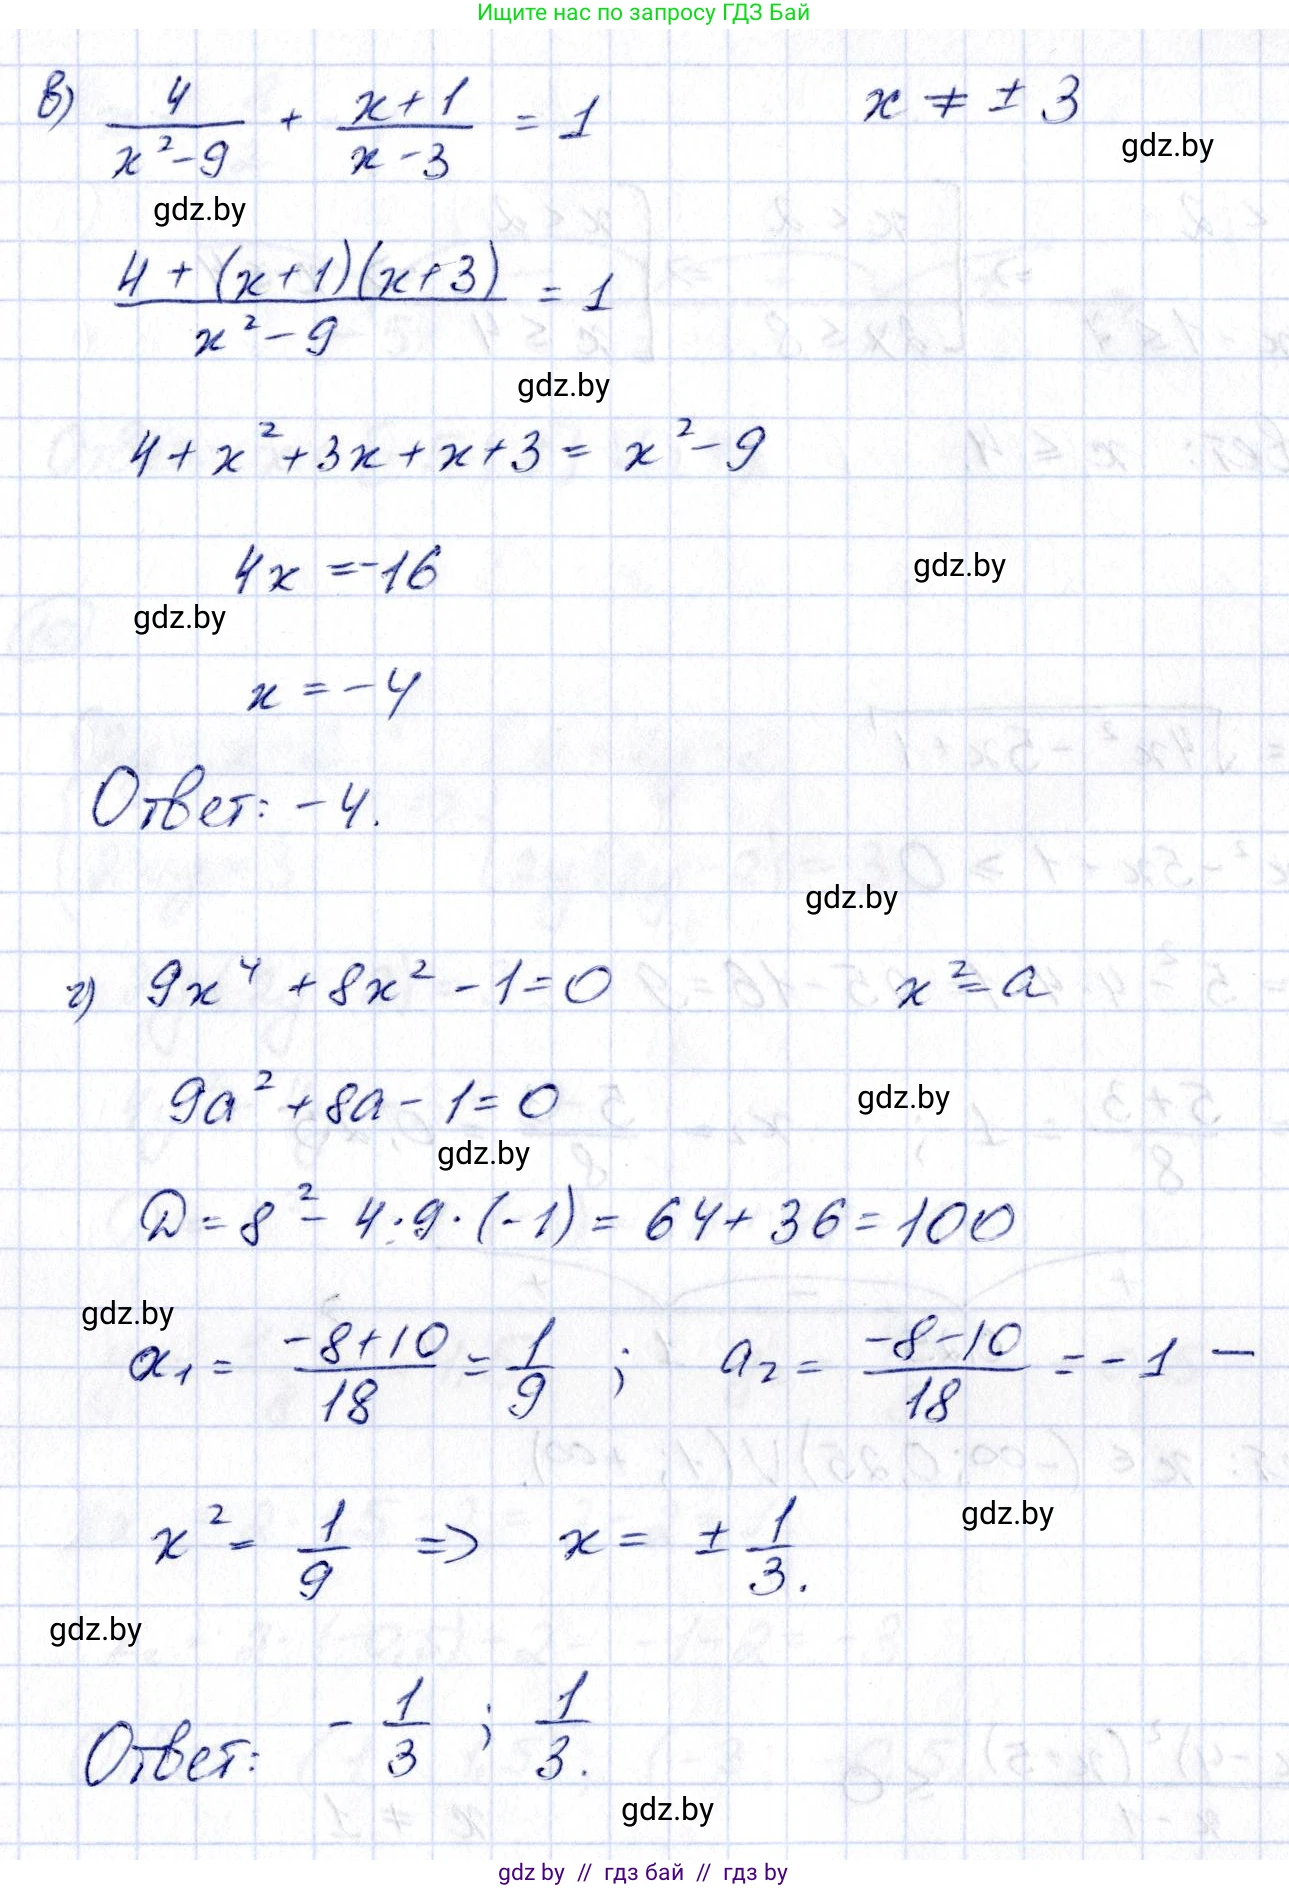 Ищите нас по запросу ГДЗ Бай
в) 4/(x²-9) + (x+1)/(x-3) = 1    x ≠ ± 3
gdz.by
gdz.by
(4+(x+1)(x+3))/(x²-9) = 1
gdz.by
4+x²+3x+x+3= x²-9
4x =-16
gdz.by
gdz.by
x =-4
Ответ: -4.
gdz.by
г) 9x⁴+8x²-1=0    x²=a
9a²+8a-1=0
gdz.by
gdz.by
D=8²-4·9·(-1)=64+36=100
gdz.by
a₁= (-8+10)/18 = 1/9 ; a₂= (-8-10)/18 =-1 —
x²= 1/9 => x= ± 1/3.
gdz.by
gdz.by
Ответ: -1/3 ; 1/3.
gdz.by
gdz by // гдз бай // гдз by